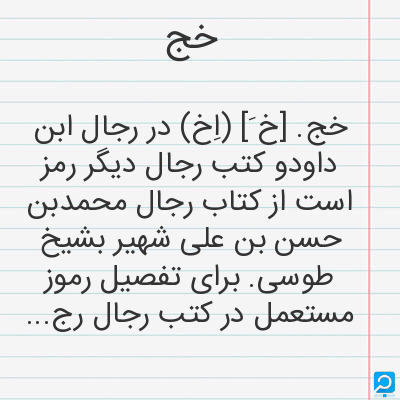 خج
خج. [خ َ] (اِخ) در رجال ابن
داودو کتب رجال دیگر رمز
است از کتاب رجال محمدبن
حسن بن علی شهیر بشیخ
طوسی. برای تفصیل رموز
مستعمل در کتب رجال رج...